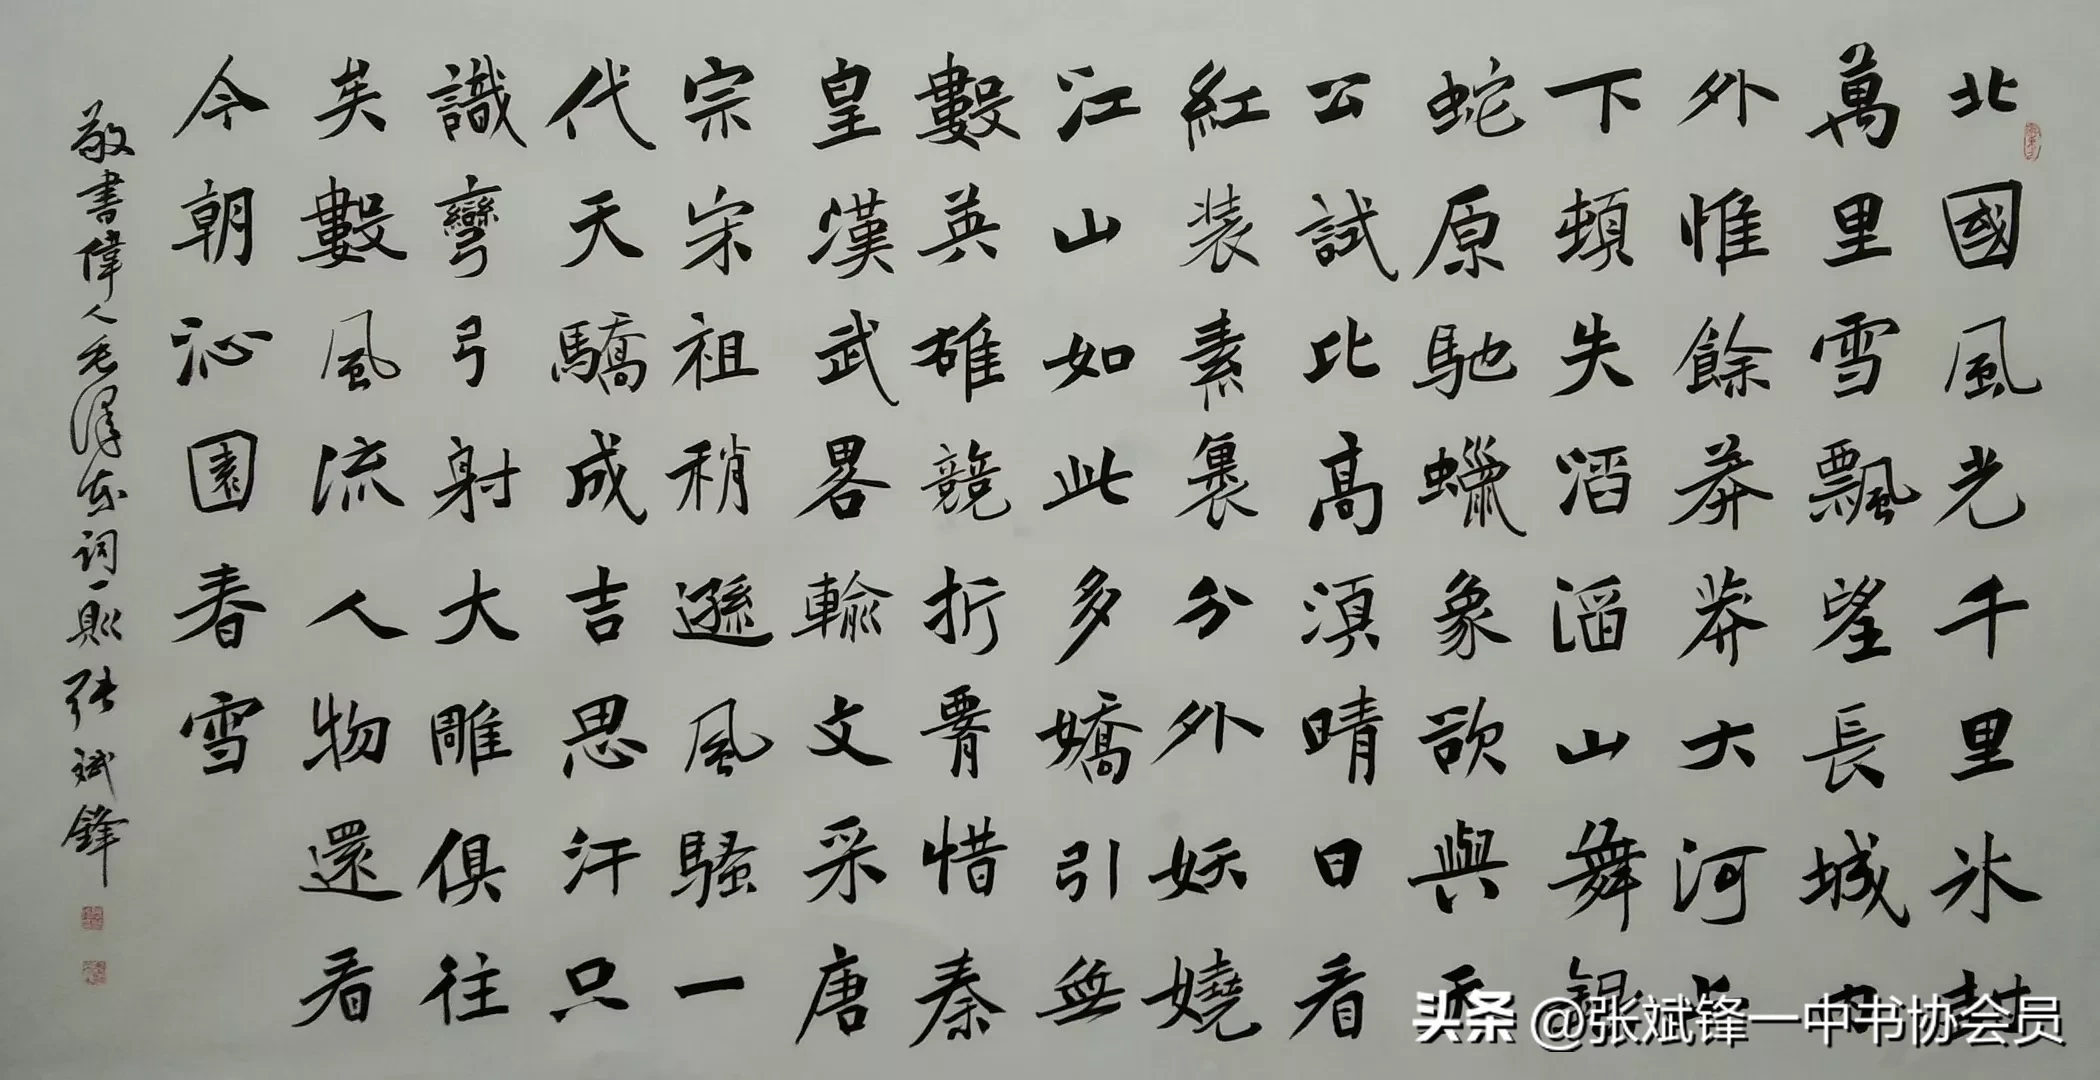 北國風光千里冰封
萬里雪飄望長城内
外惟餘莽莽大河上
下頓失滔滔山舞銀
蛇原馳蠟象欲與天
公試比高須晴日看
紅装素裹分外妖嬈
江山如此多嬌引無
數英雄競折腰惜秦
皇漢武畧輸文采唐
宗宋祖稍遜風騷一
代天驕成吉思汗只
識彎弓射大雕俱往
矣數風流人物還看
今朝沁園春雪
敬書偉人毛澤东詞一則張斌鋒
头条 @张斌锋一中书协会员